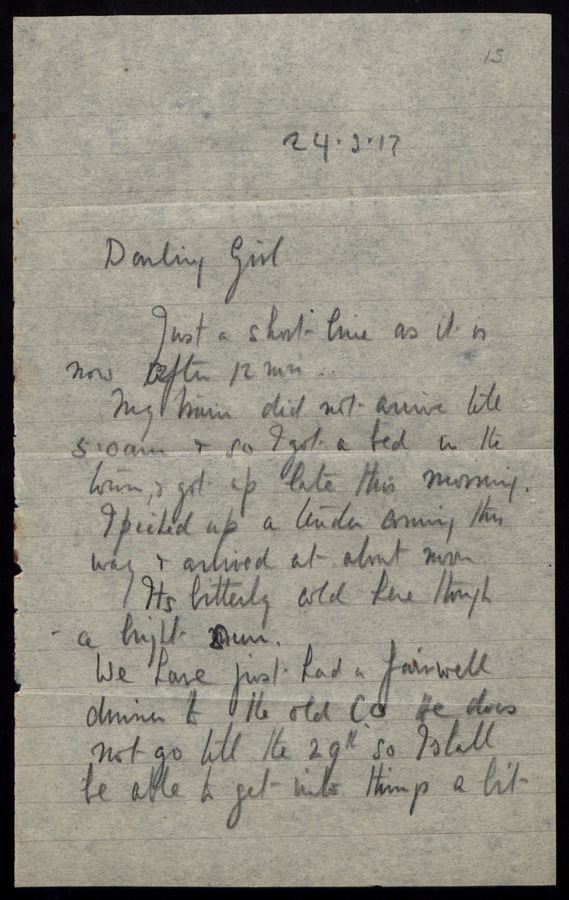 15
24.3.17
Darling Girl
Just a short line as it is
now after 12 mn ..
My train did not arrive till
5.0am & so I got a bed in the
town, & got up late this morning.
I picked up a tender coming this
way & arrived at about noon
Its bitterly cold here though
a bright sun.
We have just had a fairwell
dinner to the old CO He does
not go till the 29th so I shall
be able to get into things a bit